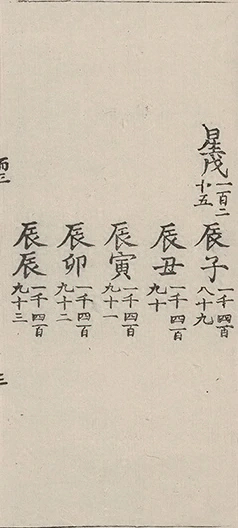 星戊一百二十五
辰子一千四百八十九
辰丑一千四百九十
辰寅一千四百九十一
辰卯一千四百九十二
辰辰一千四百九十三
三